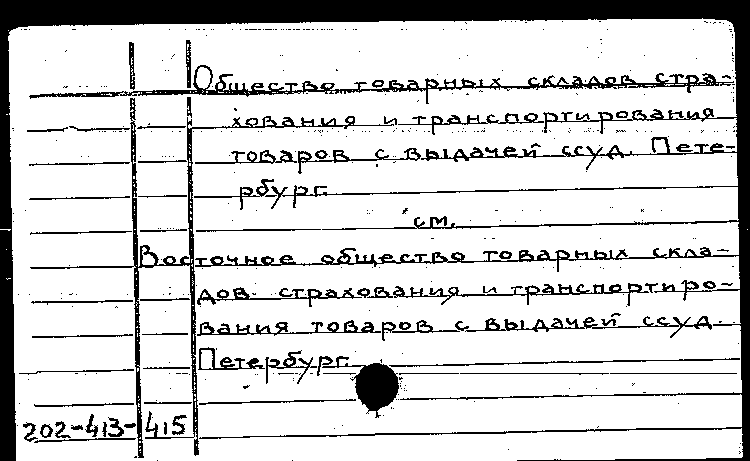 Общество товарных складов стра-
хования и транспортирования
товаров с выдачей ссуд. Пете-
рбург.
см.
Восточное общество товарных скла-
дов. страхования и транспортиро-
вания товаров с выдачей ссуд.
Петербург.
202-413-415